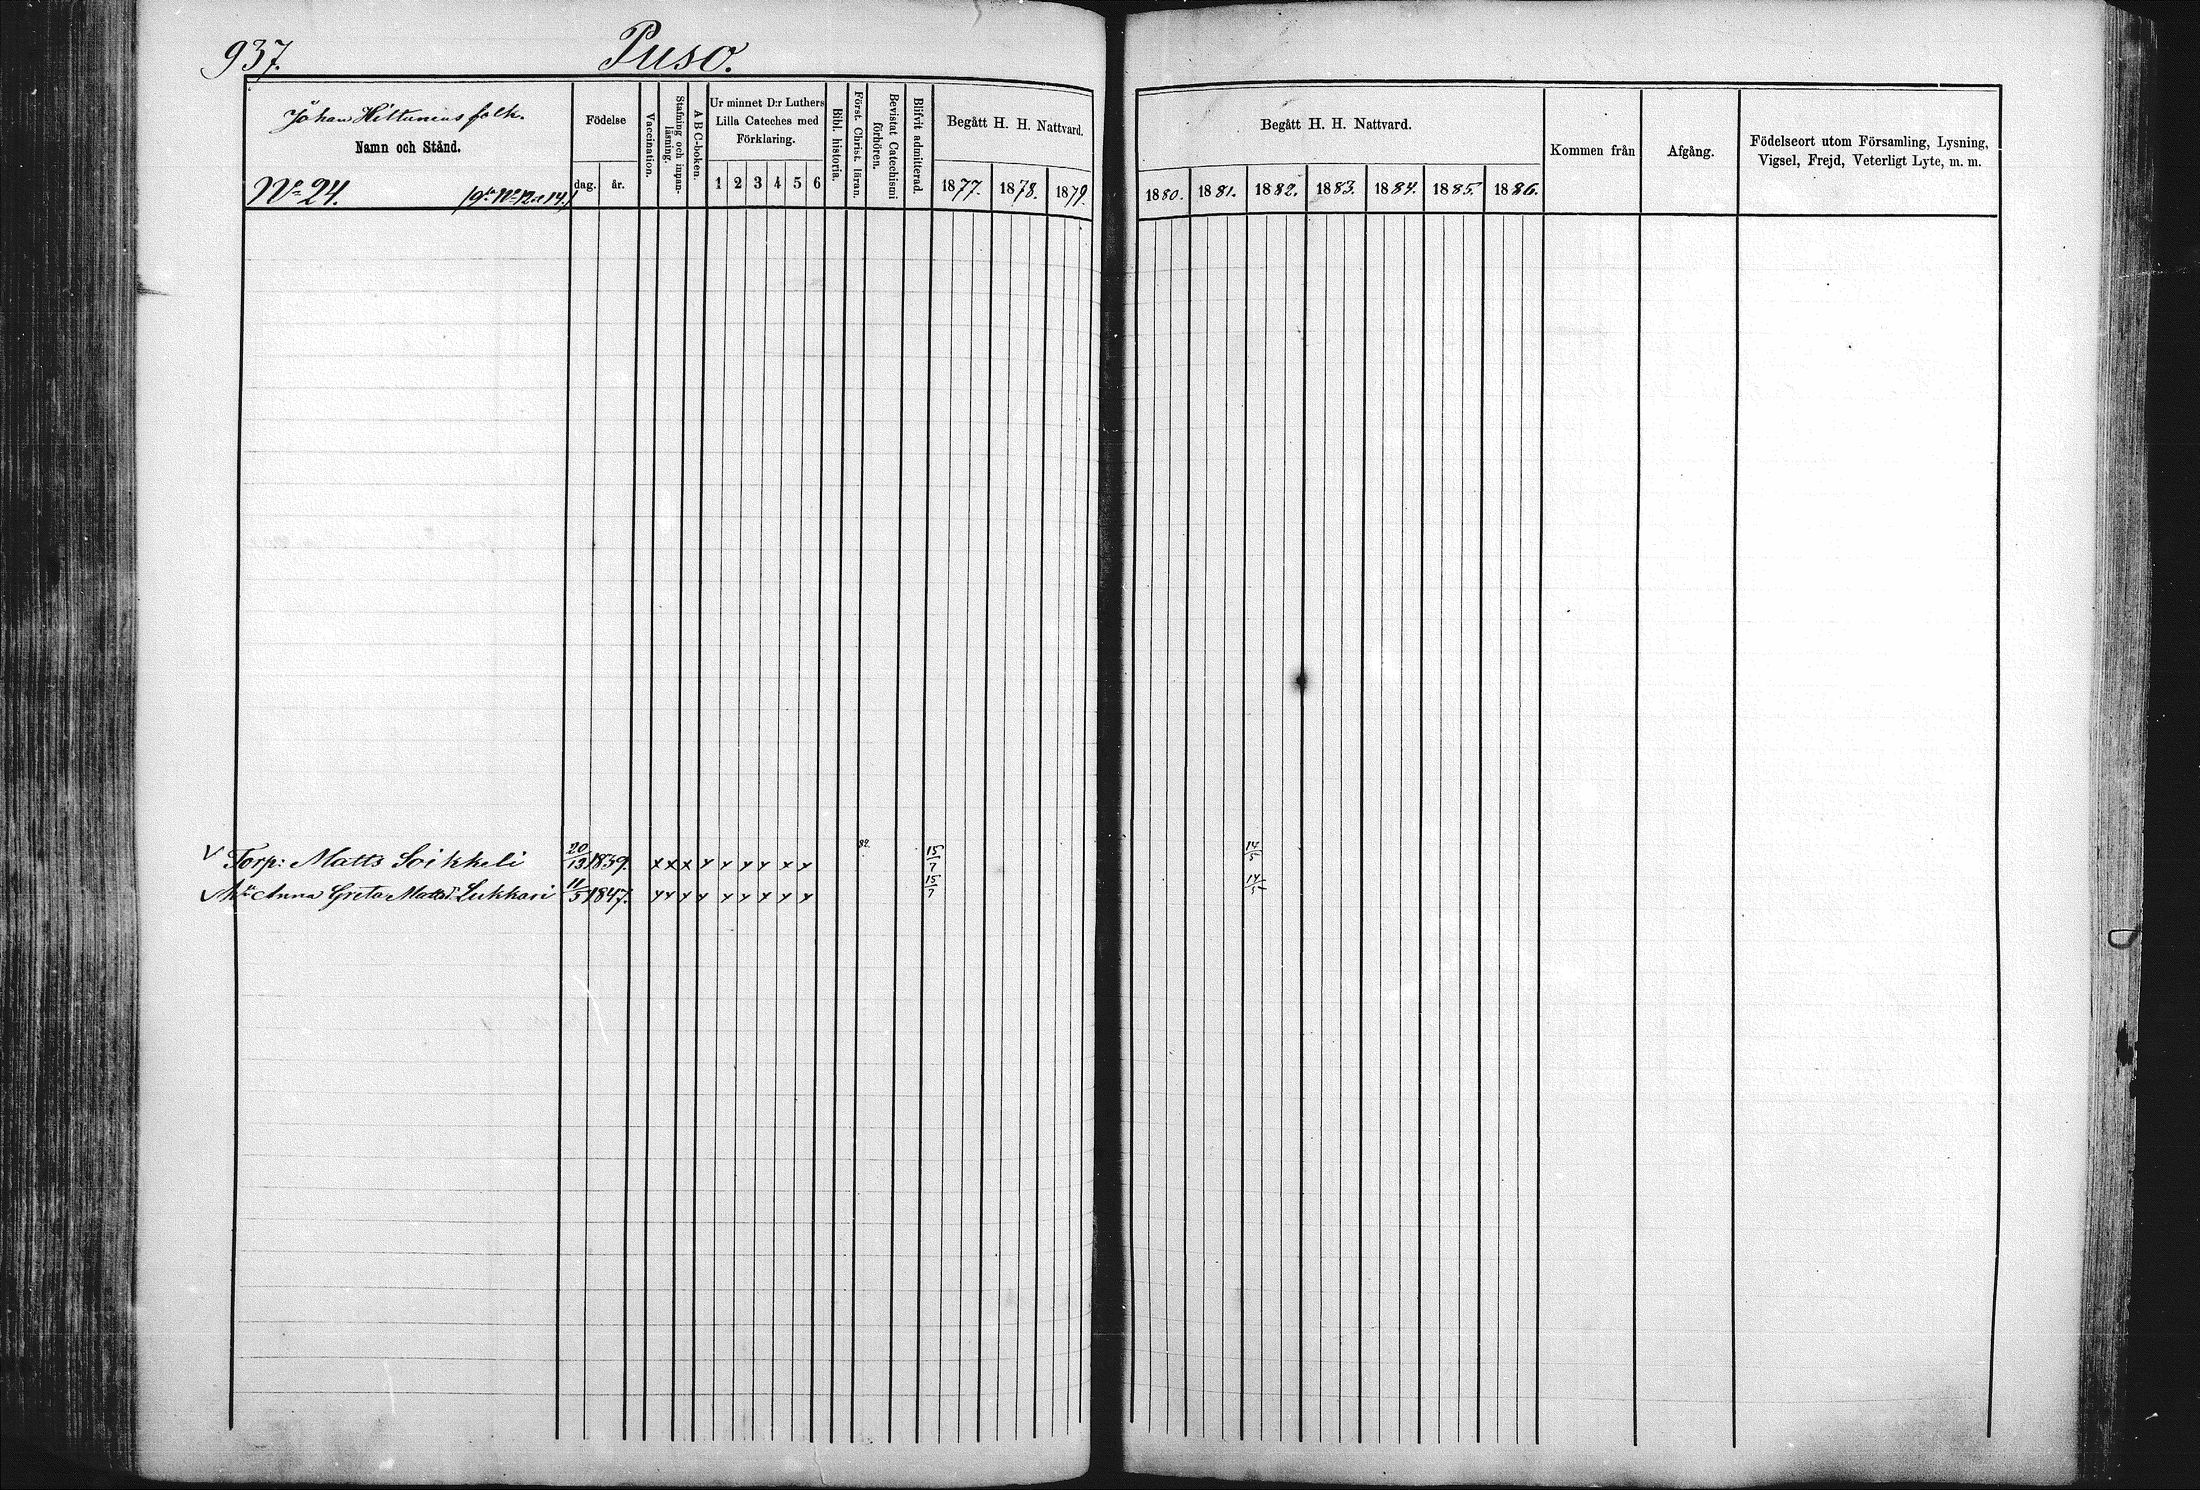 937.
Puso.
Johan Hiltunens folk.
Namn och Stånd.
No 24.
Födelse
dag. år.
Vaccination.
Stafning och innanläsning.
A B C-boken.
Ur minnet D:r Luthers
Lilla Cateches med
Förklaring.
1 2 3 4 5 6
Bibl. historia.
Först. Christ. läran.
Bevistat Catechismi förhören.
Blifvit admitterad.
Begått H. H. Nattvard.
1877. 1878. 1879.
Begått H. H. Nattvard.
1880. 1881. 1882. 1883. 1884. 1885. 1886.
Kommen från
Afgång.
Födelseort utom Församling, Lysning,
Vigsel, Frejd, Veterligt Lyte, m. m.
V Torp: Matts Soikkeli 20/12 1839. x x x x x x x x x 82. 15/7 14/5
Anna Greta Mattsdr Lukkari 11/5 1847. x x x x x x x x x 15/7 14/5